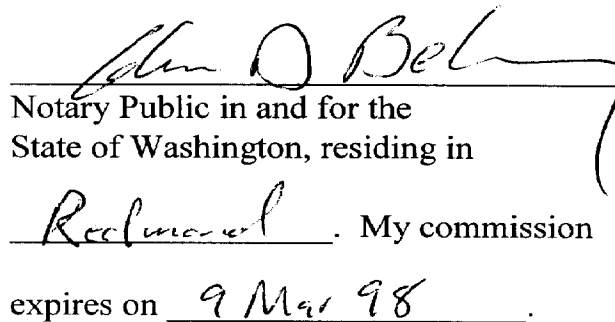 D
Notary Public in and for the
State of Washington, residing in
Redmond. My commission
expires on 9 Mar 98.